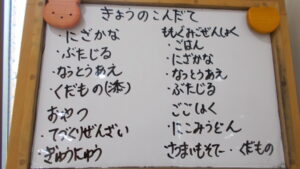 きょうのこんだて
・にざかな
・ぶたじる
・なっとうあえ
・くだもの(添)
おやつ
・てづくりぜんざい
・ぎゅうにゅう
ももぐみごぜんしょく
・ごはん
・にざかな
・なっとうあえ
・ぶたじる
ごごしょく
・にこみうどん
・くだもの